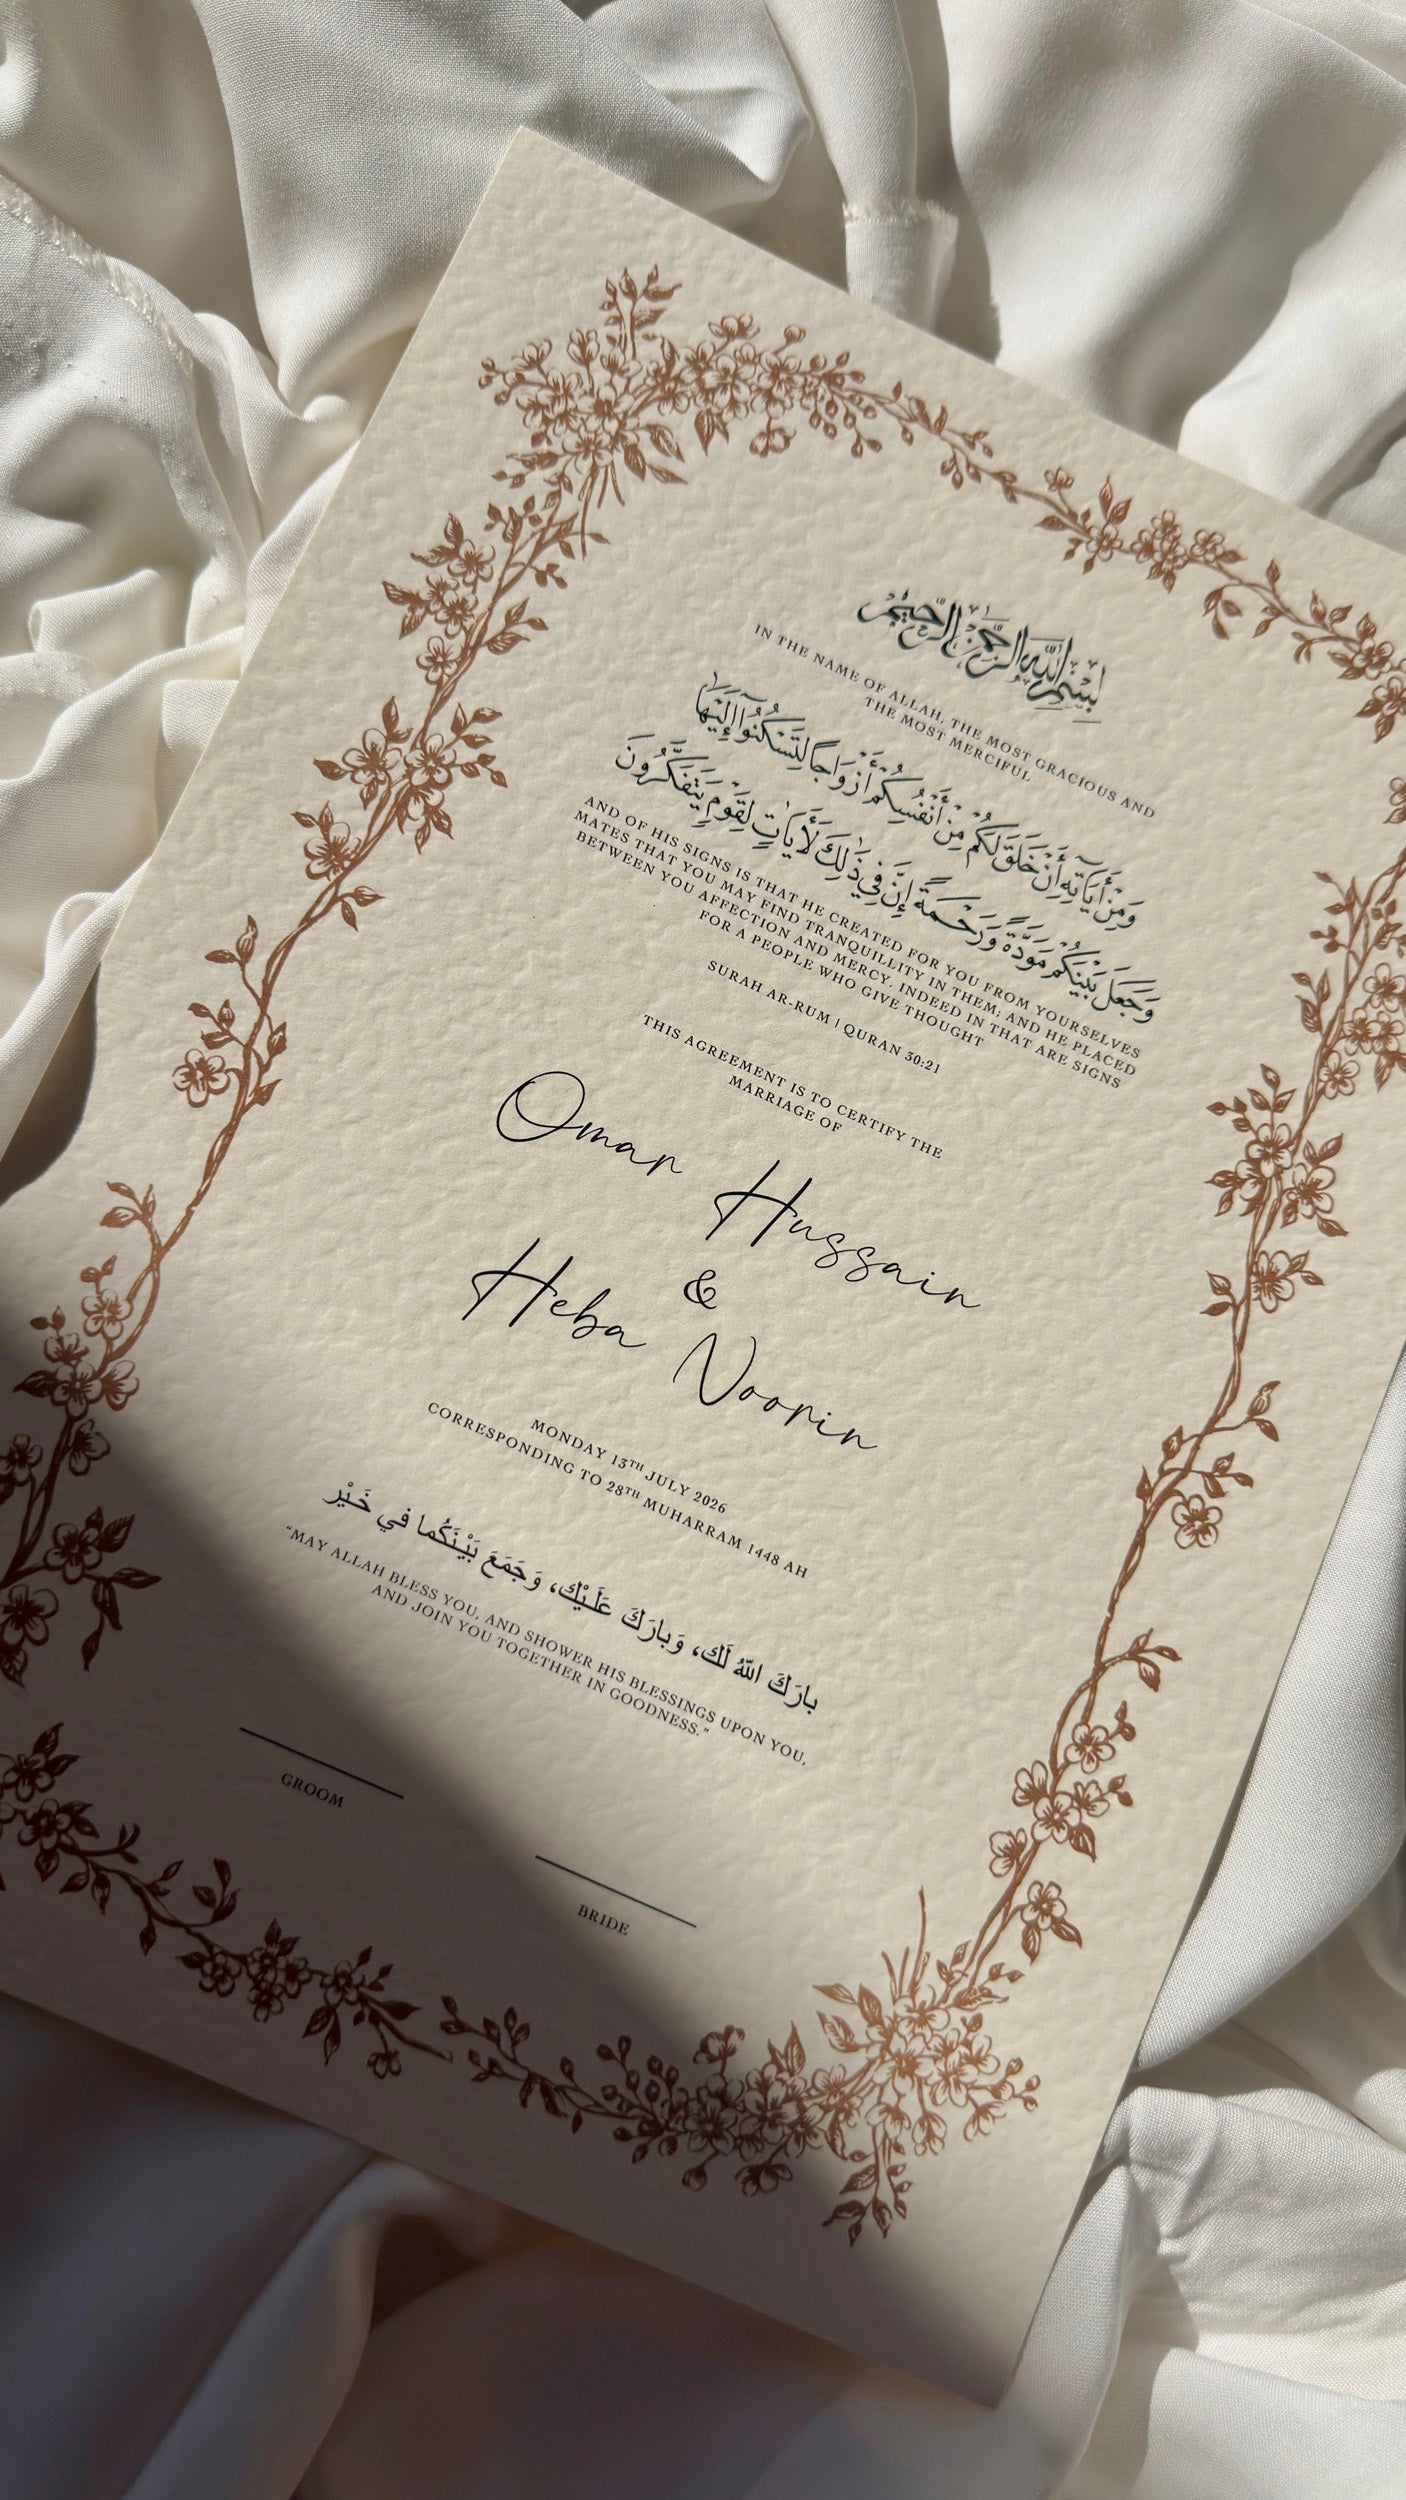 بِسْمِ اللَّهِ الرَّحْمَنِ الرَّحِيمِ
IN THE NAME OF ALLAH, THE MOST GRACIOUS AND
THE MOST MERCIFUL
وَمِنْ أَيَاتِهِ أَنْ خَلَقَ لَكُم مِّنْ أَنْفُسِكُمْ أَزْوَاجًا لِتَسْكُنُوا إِلَيْهَا
وَجَعَلَ بَيْنَكُم مَوَدَّةً وَرَحْمَةً إِنَّ فِي ذَٰلِكَ لَأَيَاتٍ لِقَوْمٍ يَتَفَكَّرُونَ
AND OF HIS SIGNS IS THAT HE CREATED FOR YOU FROM YOURSELVES
MATES THAT YOU MAY FIND TRANQUILLITY IN THEM; AND HE PLACED
BETWEEN YOU AFFECTION AND MERCY. INDEED IN THAT ARE SIGNS
FOR A PEOPLE WHO GIVE THOUGHT
SURAH AR-RUM | QURAN 30:21
THIS AGREEMENT IS TO CERTIFY THE
MARRIAGE OF
Omar Hussain
&
Heba Noorin
MONDAY 13TH JULY 2026
CORRESPONDING TO 28TH MUHARRAM 1448 AH
بارَكَ اللهُ لَك، وَبارَكَ عَلَيْك، وَجَمَعَ بَيْنَكُما في خَيْر
"MAY ALLAH BLESS YOU, AND SHOWER HIS BLESSINGS UPON YOU,
AND JOIN YOU TOGETHER IN GOODNESS."
GROOM
BRIDE